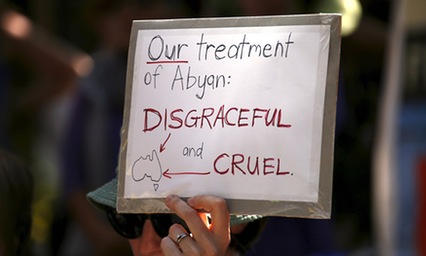 Our treatment
of Abyan:
DISGRACEFUL
and
CRUEL.